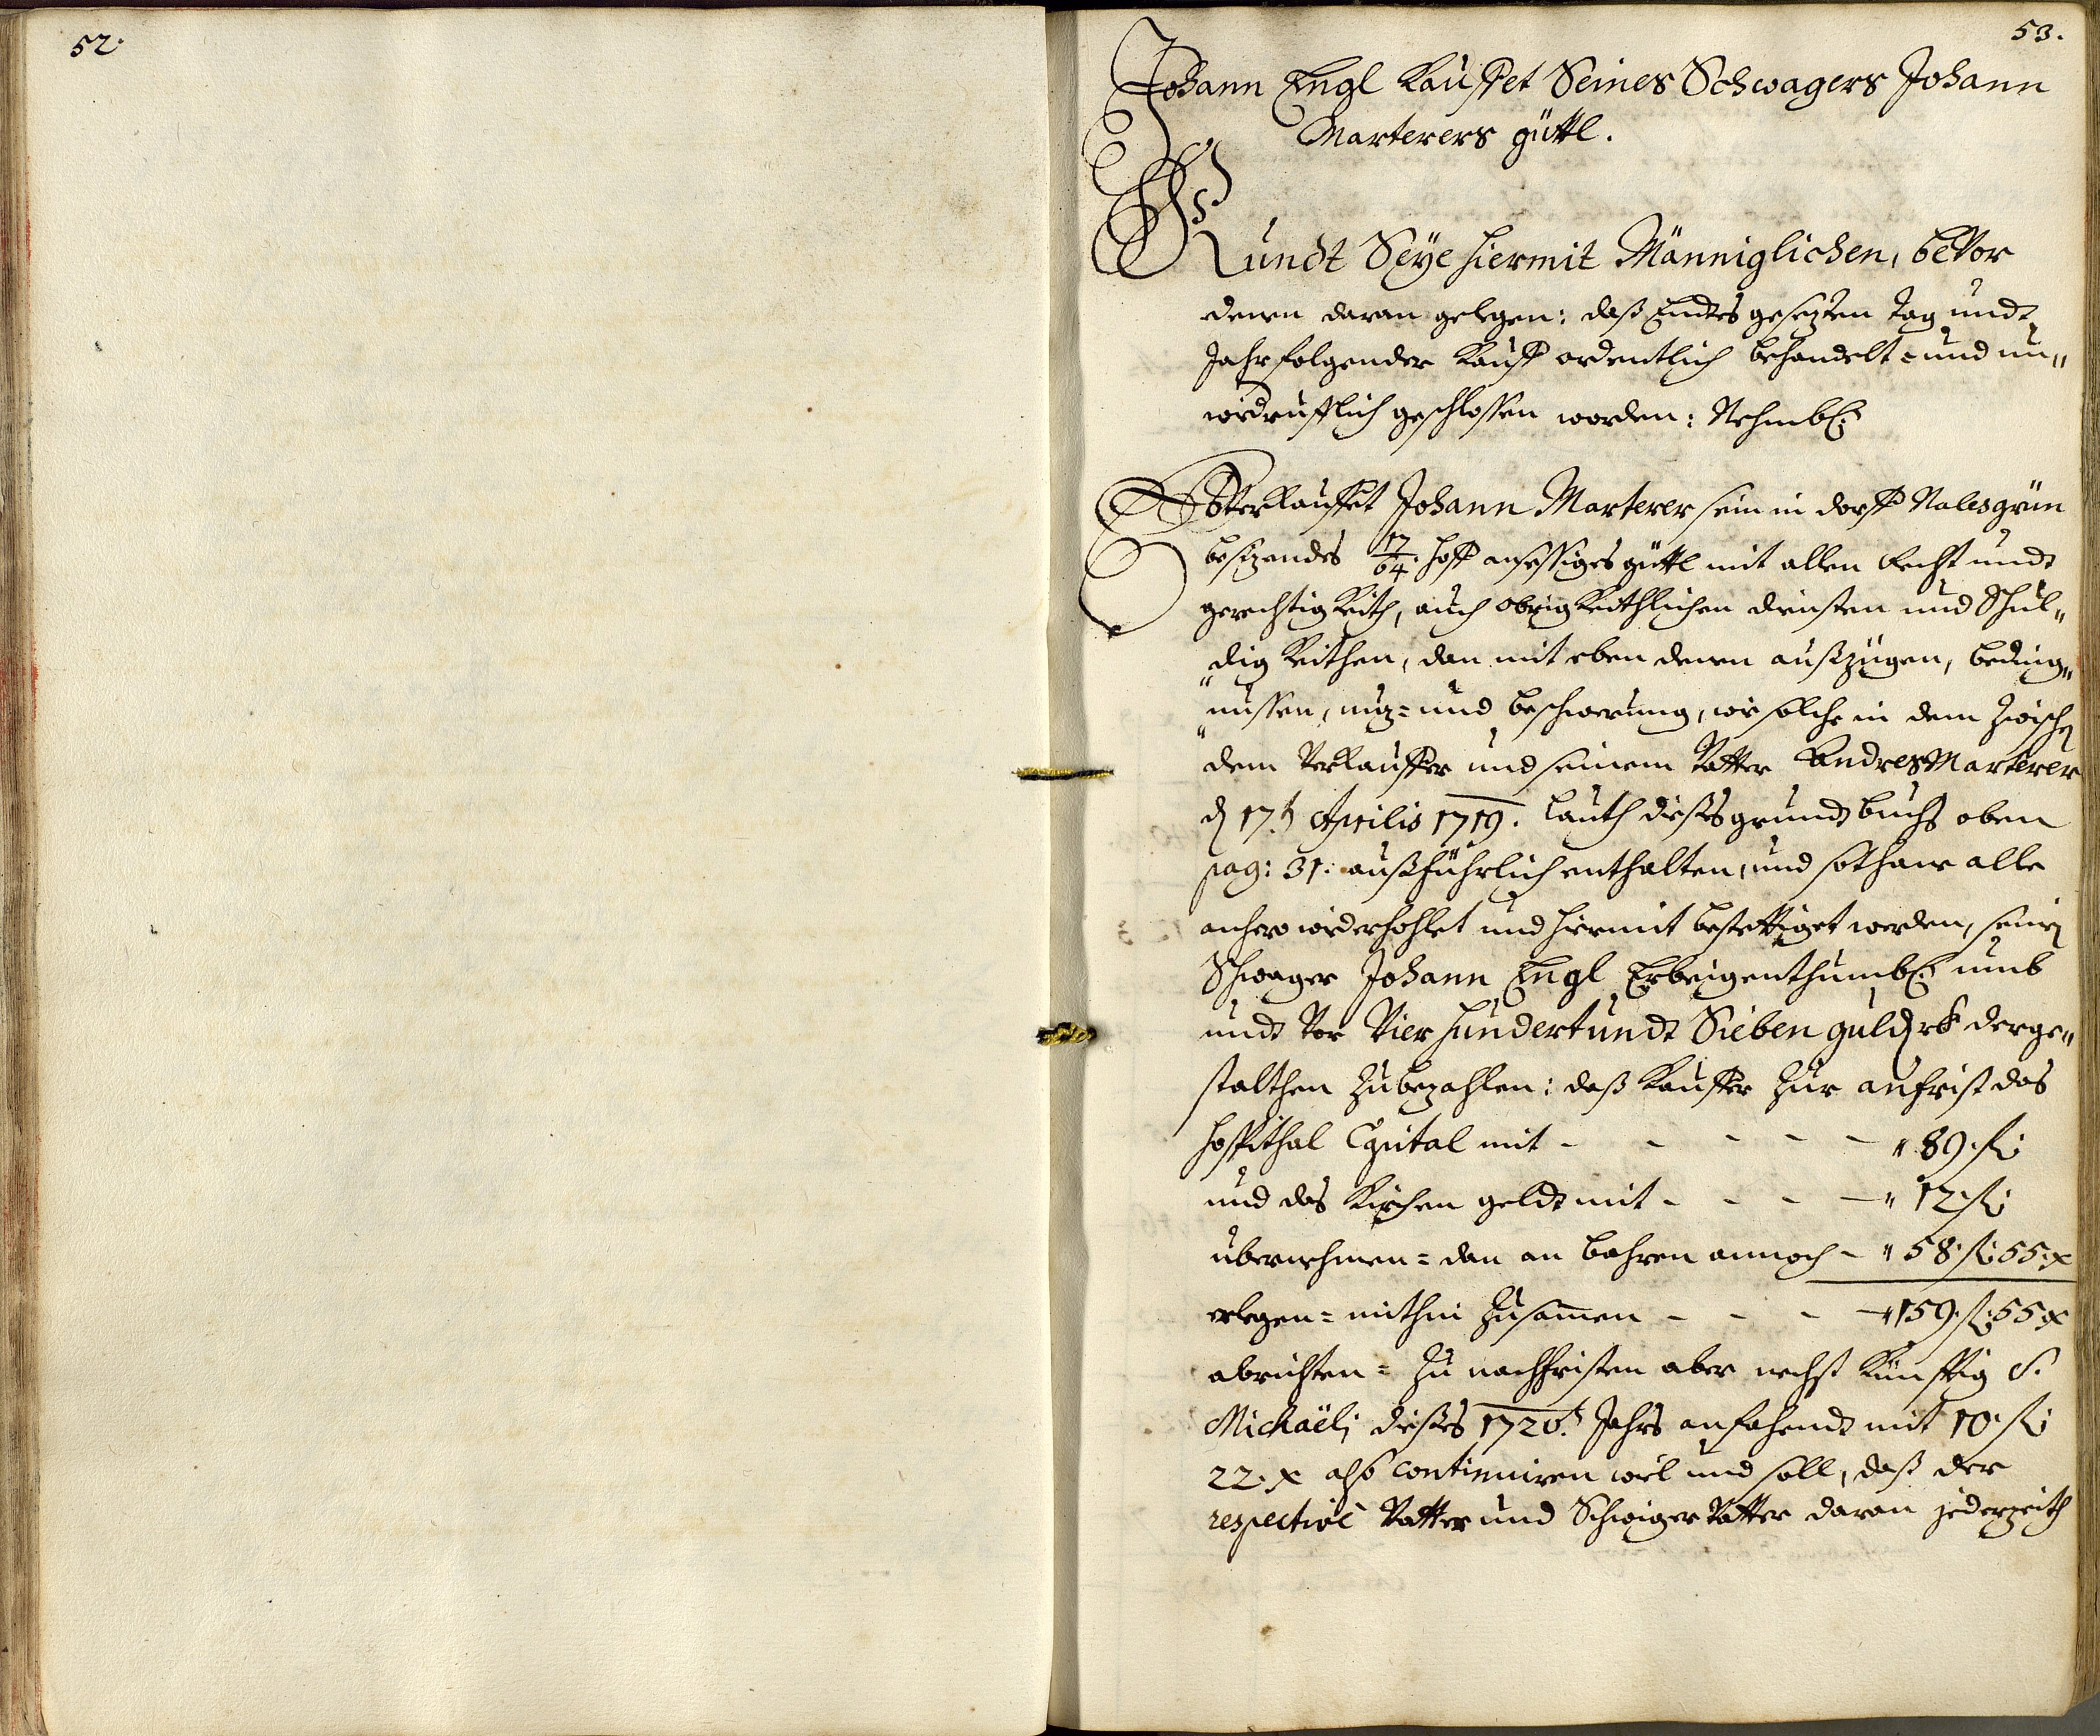 52.
53.
Johann Engl Kauffet Seines Schwagers Johann
Marterers güttl.
Kundt Seÿe hiermit Männiglichen, beVor
denen daran gelegen: daß Endts gesezten Tag undt
Jahr folgender Kauff ordentlich behandelt- und un„
widerufflich geschlossen worden: Nehmbl:
Verkauffet Johann Marterer sein in dorff Nalesgrün
besizendes 17/64 hoff ansessiges güttl mit allen Recht undt
gerechtigkeith, auch obrigkeithlichen dinsten und Schul„
„digkeithen, dan mit eben denen außzügen, beding„
„nussen, nuz= und beschwerung, wie solche in dem Zwischen
dem Verkauffer und seinem Vatter Andres Marterer
den 17.t Aprilis 1719. lauth dißes grundtbuchs oben
pag: 31. außführlich enthalten, und sothane alle
anhero widerhohlet und hiermit bestettiget werden, seinen
Schwager Johann Engl Erbeigenthumbl: umb
undt Vor Vierhundert undt Sieben gulden rh derge„
stalthen Zubezahlen: daß Kauffer Zur anfrist das
hospithal Capital mit - - - - - „ 89. fl:
und das Kirchen geldt mit - - - - „ 12. fl:
übernehmen= dan an bahren annoch - „ 58. fl: 55. x
erlegen= mithin Zusamen - - - - „ 159. fl: 55. x
abrichten= Zu nachfristen aber nechst Künfftig S.
Michaëlj dißes 1720.t Jahrs anfahendt mit 10. fl:
22. x also continuiren wil und soll, daß der
respectivè Vatter und Schwiger Vatter daran jederzeith